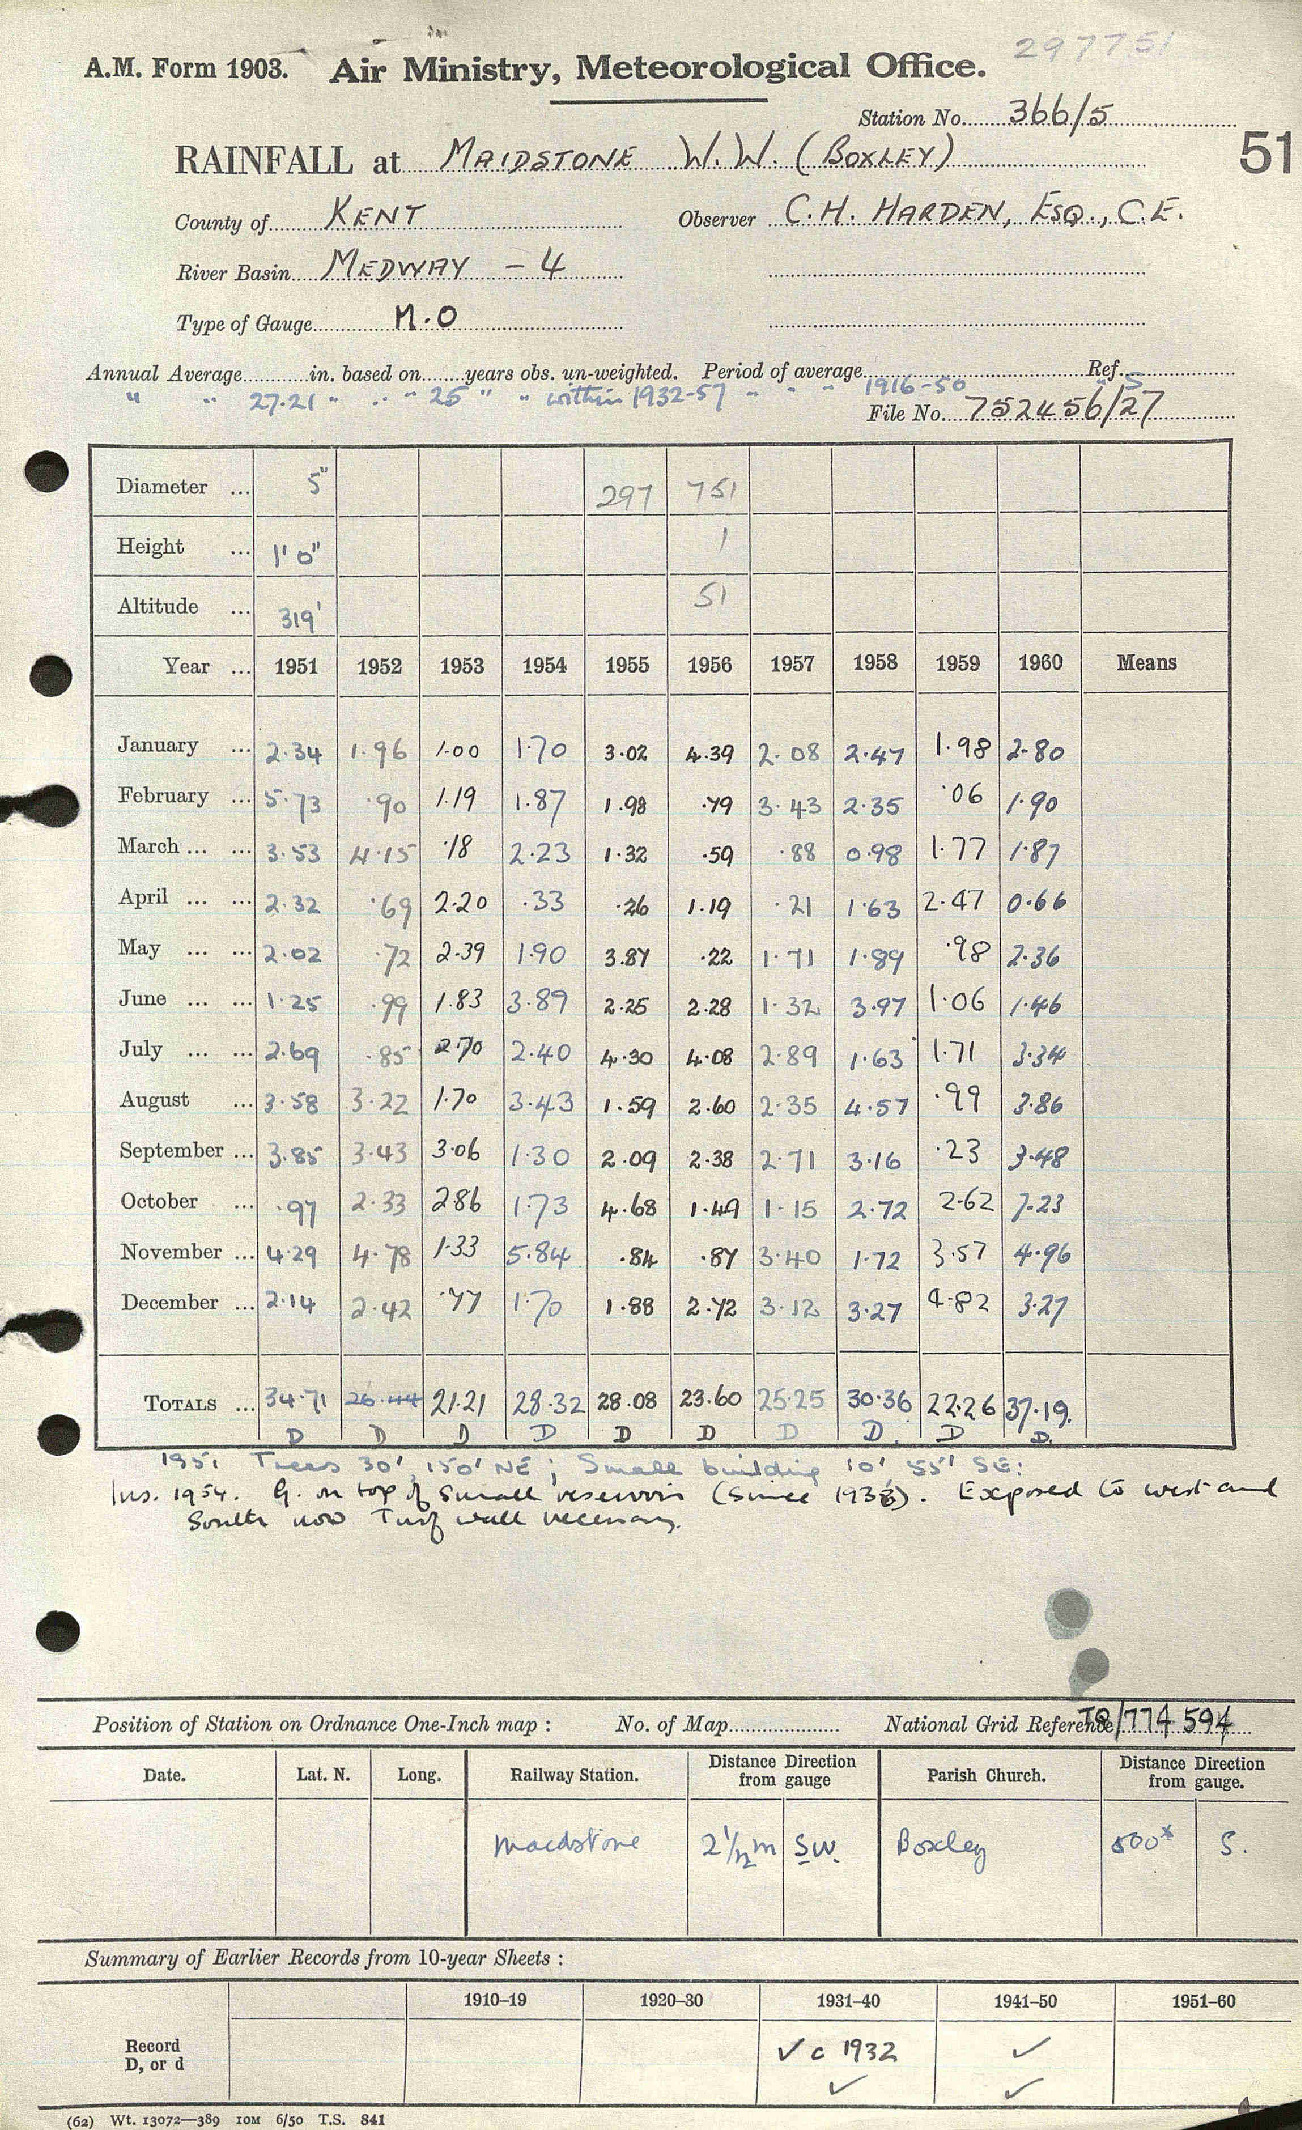 297751
A.M. Form 1903. Air Ministry, Meteorological Office.
Station No. 366/5
51
RAINFALL at MAIDSTONE W.W. (BOXLEY)
County of KENT Observer C.H. HARDEN, ESQ., C.E.
River Basin MEDWAY - 4
Type of Gauge M.O
Annual Average in. based on years obs. un-weighted. Period of average Ref.
" " 27.21 " " " 25 " " within 1932-57 " " " 1916-50 " S
File No. 752456/27
Diameter ... 5" 297 751
Height ... 1' 0" 1
Altitude ... 319' 51
Year ... 1951 1952 1953 1954 1955 1956 1957 1958 1959 1960 Means
January ... 2.34 1.96 1.00 1.70 3.02 4.39 2.08 2.47 1.98 2.80
February ... 5.73 .90 1.19 1.87 1.98 .79 3.43 2.35 .06 1.90
March ... ... 3.53 4.15 .18 2.23 1.32 .59 .88 0.98 1.77 1.87
April ... ... 2.32 .69 2.20 .33 .26 1.19 .21 1.63 2.47 0.66
May ... ... 2.02 .72 2.39 1.90 3.87 .22 1.71 1.89 .98 2.36
June ... ... 1.25 .99 1.83 3.89 2.25 2.28 1.32 3.97 1.06 1.46
July ... ... 2.69 .85 2.70 2.40 4.30 4.08 2.89 1.63 1.71 3.34
August ... 3.58 3.22 1.70 3.43 1.59 2.60 2.35 4.57 .99 3.86
September ... 3.85 3.43 3.06 1.30 2.09 2.38 2.71 3.16 .23 3.48
October ... .97 2.33 2.86 1.73 4.68 1.49 1.15 2.72 2.62 7.23
November ... 4.29 4.78 1.33 5.84 .84 .87 3.40 1.72 3.57 4.96
December ... 2.14 2.42 .77 1.70 1.88 2.72 3.12 3.27 4.82 3.27
TOTALS ... 34.71 26.44 21.21 28.32 28.08 23.60 25.25 30.36 22.26 37.19.
D D D D D D D D. D D.
1951 Trees 30', 150' NE; Small building 10' 55' SE:
Ins. 1954. G. on top of small reservoir (Since 1938). Exposed to west and
South now Turf wall necessary.
Position of Station on Ordnance One-Inch map : No. of Map National Grid Reference TQ/774 594
Date. Lat. N. Long. Railway Station. Distance Direction from gauge Parish Church. Distance Direction from gauge.
Maidstone 2½m SW. Boxley 500x S.
Summary of Earlier Records from 10-year Sheets :
1910–19 1920–30 1931–40 1941–50 1951–60
Record D, or d ✓ c 1932 ✓
✓ ✓
(62) Wt. 13072—389 10M 6/50 T.S. 841